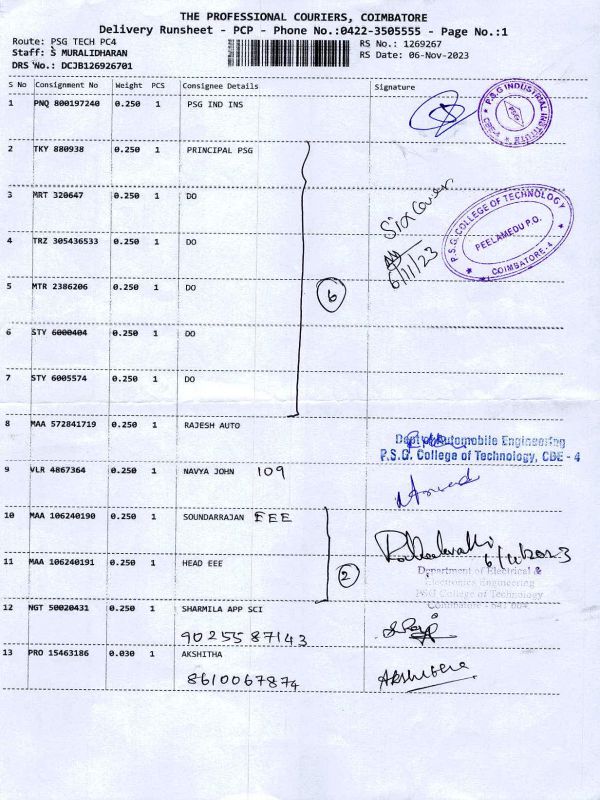 THE PROFESSIONAL COURIERS, COIMBATORE
Delivery Runsheet - PCP - Phone No.:0422-3505555 - Page No.:1
Route: PSG TECH PC4 RS No.: 1269267
Staff: S MURALIDHARAN RS Date: 06-Nov-2023
DRS No.: DCJB126926701
S No Consignment No Weight PCS Consignee Details Signature
1 PNQ 800197240 0.250 1 PSG IND INS
P.S.G INDUSTRIAL INSTITUTE
PSG
CBE-4
2 TKY 880938 0.250 1 PRINCIPAL PSG
3 MRT 320647 0.250 1 DO
Six Cover
P.S.G. COLLEGE OF TECHNOLOGY
PEELAMEDU P.O.
COIMBATORE-4
4 TRZ 305436533 0.250 1 DO
6/11/23
5 MTR 2386206 0.250 1 DO
6
6 STY 6000404 0.250 1 DO
7 STY 6005574 0.250 1 DO
8 MAA 572841719 0.250 1 RAJESH AUTO
Dept of Automobile Engineering
P.S.G. College of Technology, CBE - 4
9 VLR 4867364 0.250 1 NAVYA JOHN 109
10 MAA 106240190 0.250 1 SOUNDARRAJAN EEE
6/11/2023
11 MAA 106240191 0.250 1 HEAD EEE
2
Department of Electrical &
Electronics Engineering
PSG College of Technology
Coimbatore - 641 004.
12 NGT 50020431 0.250 1 SHARMILA APP SCI
9025587143
13 PRO 15463186 0.030 1 AKSHITHA
8610067874
Akshitha